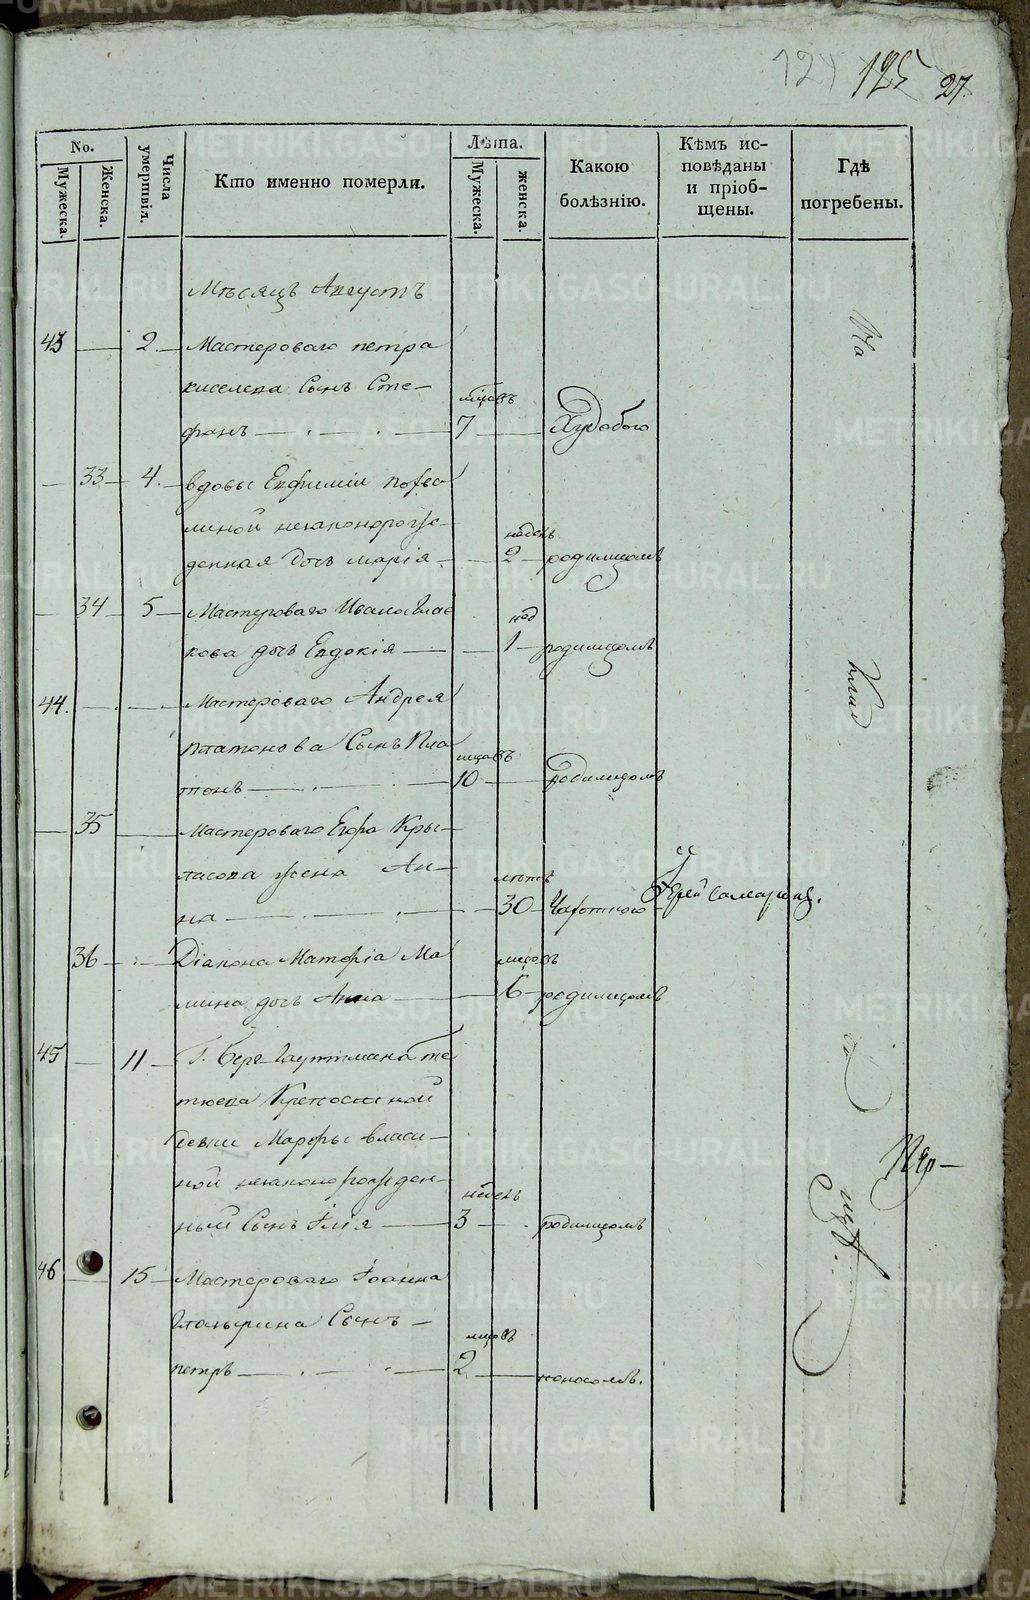 124 125 27.
No.
Мужеска.
Женска.
Числа умертвія.
Кто именно померли.
Лѣта.
Мужеска.
женска.
Какою болѣзнію.
Кѣмъ исповѣданы и пріобщены.
Гдѣ погребены.
Мѣсяцъ Августъ
43 — 2. Мастероваго петра
киселева Сынъ Сте-
фанъ — мцовъ 7 — Худобою
— 33 — 4. вдовы Евфиміи
линой незаконорож-
денная дочь марія — недель 2 — родимцомъ
— 34 — 5 — Мастероваго Ивана
кова дочь Евдокія — нед 1 — родимцомъ
44. — Мастероваго Андрея
платонова Сынъ Пла
тонъ — мцовъ 10 — родимцомъ
— 35 — Мастероваго Егора Кры-
ласова жена Ан-
на — лѣтъ 30 — Чахоткою Іерей
36 — Діакона Ма
мина дочь Анна — мцовъ 6 — родимцомъ
45 — 11 — Г. Берг-Гауптмана
Крепосной
девки Марфы власи-
ной незаконорожден-
ный Сынъ Илія — недель 3 — родимцомъ
46 — 15 — Мастероваго Іоанна
Сынъ —
петръ — мцовъ 2 — поносомъ.
На
Клад